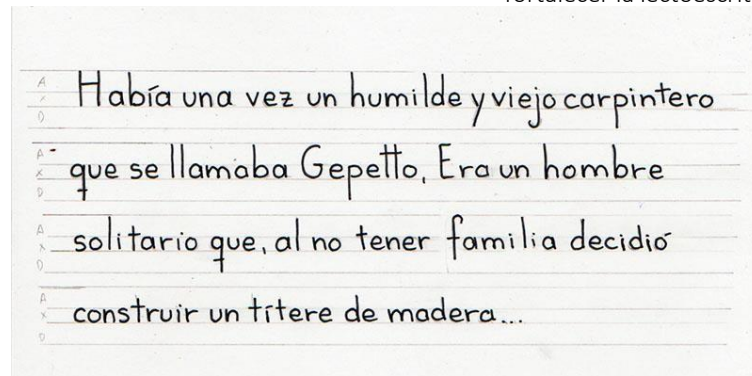 Había una vez un humilde y viejo carpintero
que se llamaba Gepetto, Era un hombre
solitario que, al no tener familia decidió
construir un títere de madera...